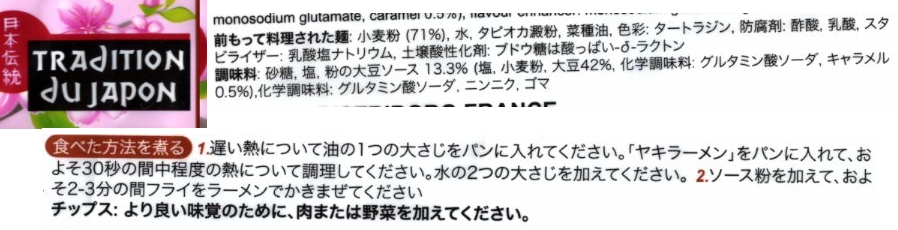 日本伝統
TRADITION
DU JAPON
monosodium glutamate, caramel 0.5%), flavour enhancer:
前もって料理された麺: 小麦粉 (71%), 水, タピオカ澱粉, 菜種油, 色彩: タートラジン, 防腐剤: 酢酸, 乳酸, スタ
ビライザー: 乳酸塩ナトリウム, 土壌酸性化剤: ブドウ糖は酸っぱい-δ-ラクトン
調味料: 砂糖, 塩, 粉の大豆ソース 13.3% (塩, 小麦粉, 大豆42%, 化学調味料: グルタミン酸ソーダ, キャラメル
0.5%),化学調味料: グルタミン酸ソーダ, ニンニク, ゴマ
FRANCE
食べた方法を煮る 1.遅い熱について油の1つの大さじをパンに入れてください。「ヤキラーメン」をパンに入れて、お
よそ30秒の間中程度の熱について調理してください。水の2つの大さじを加えてください。 2.ソース粉を加えて、およ
そ2-3分の間フライをラーメンでかきまぜてください
チップス: より良い味覚のために、肉または野菜を加えてください。